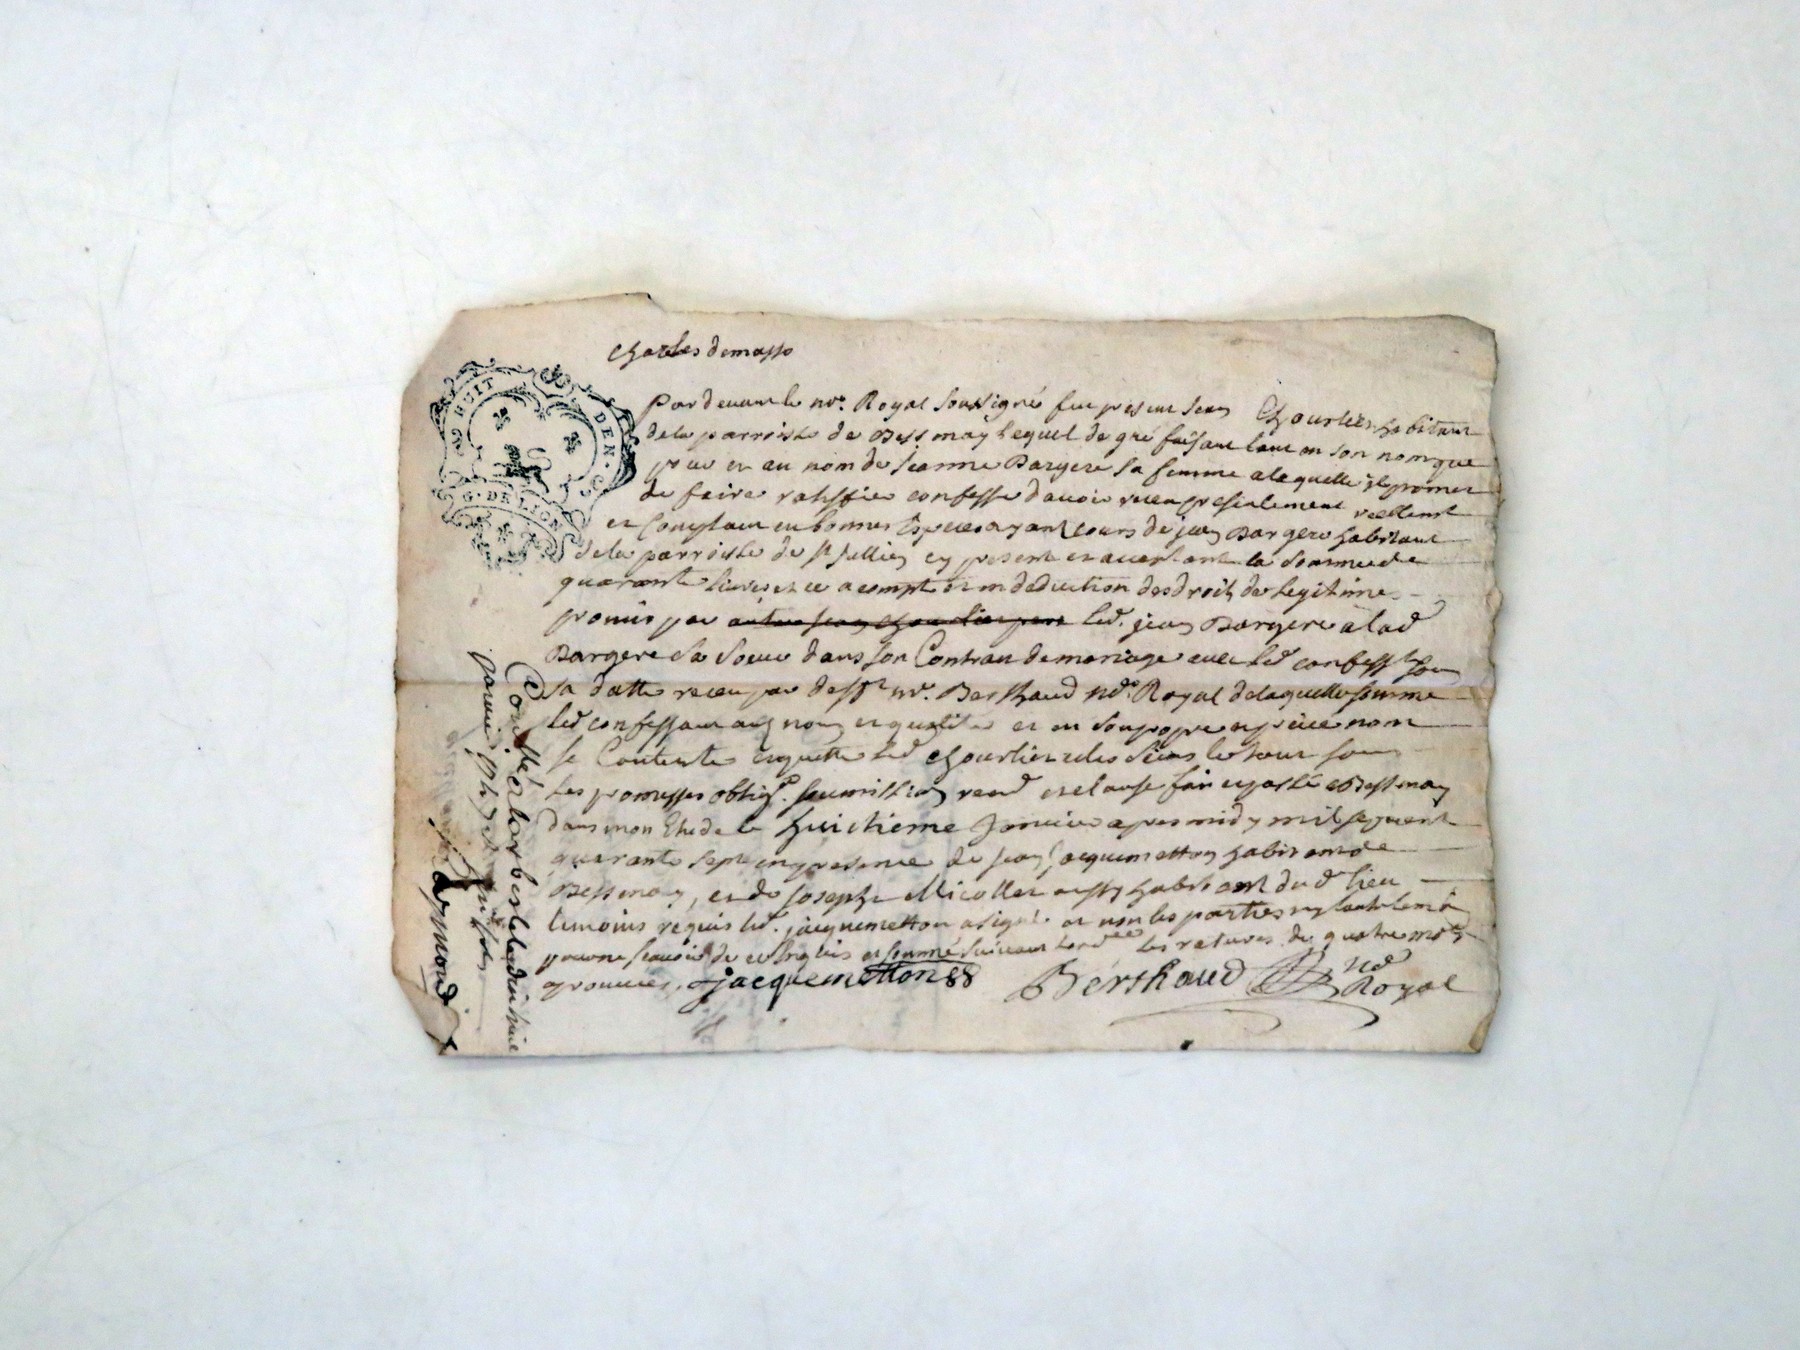 charles demasso
HUIT DEN.
G. DE LION
Pardevant le nre. Royal soussigné fut present jean Chourlier habitant
de la parroisse de Bessenay lequel de gré faisant tant en son nom que
pour et au nom de jeanne Bargere sa femme a laquelle il promet
de faire ratiffier confesse d'avoir receu presentement reellemt
et Comptant en bonnes Especes ayant cours de jean Bargere habitant
de la parroisse de st jullien cy present et acceptant la somme de
quarante livres et ce a compte et en deduction des droits de legitimes
promis par autre jean chourlier pere led. jean Bargere a lad
Bargere sa soeur dans son Contrau de mariage avec led confesst sous
sa datte receu par desft me. Berthaud nore Royal de laquelle somme
led confessant aux noms et qualité et en son propre et privé nom
se Contente enquitte led chourlier et les siens le tout sous
les promesses obligs. soumission renon et clause fait et passé a Bessenay
dans mon Etude le huictieme Janvier apres midy mil sept cent
quarante sept en presence de jean jacquemetton habitant de
Bessenay, et de joseph Micollet aussy habitant du d lieu
temoins requis led. jacquemetton a signé. et non les parties ny
pour ne scavoir de ce Enquis et sommé suivant lord les ratures de quatre mots
aprouvées. jacquemetton Berthaud nore
Royal
Controllé a larbresle le dix huit
janvier 1747
Reymond